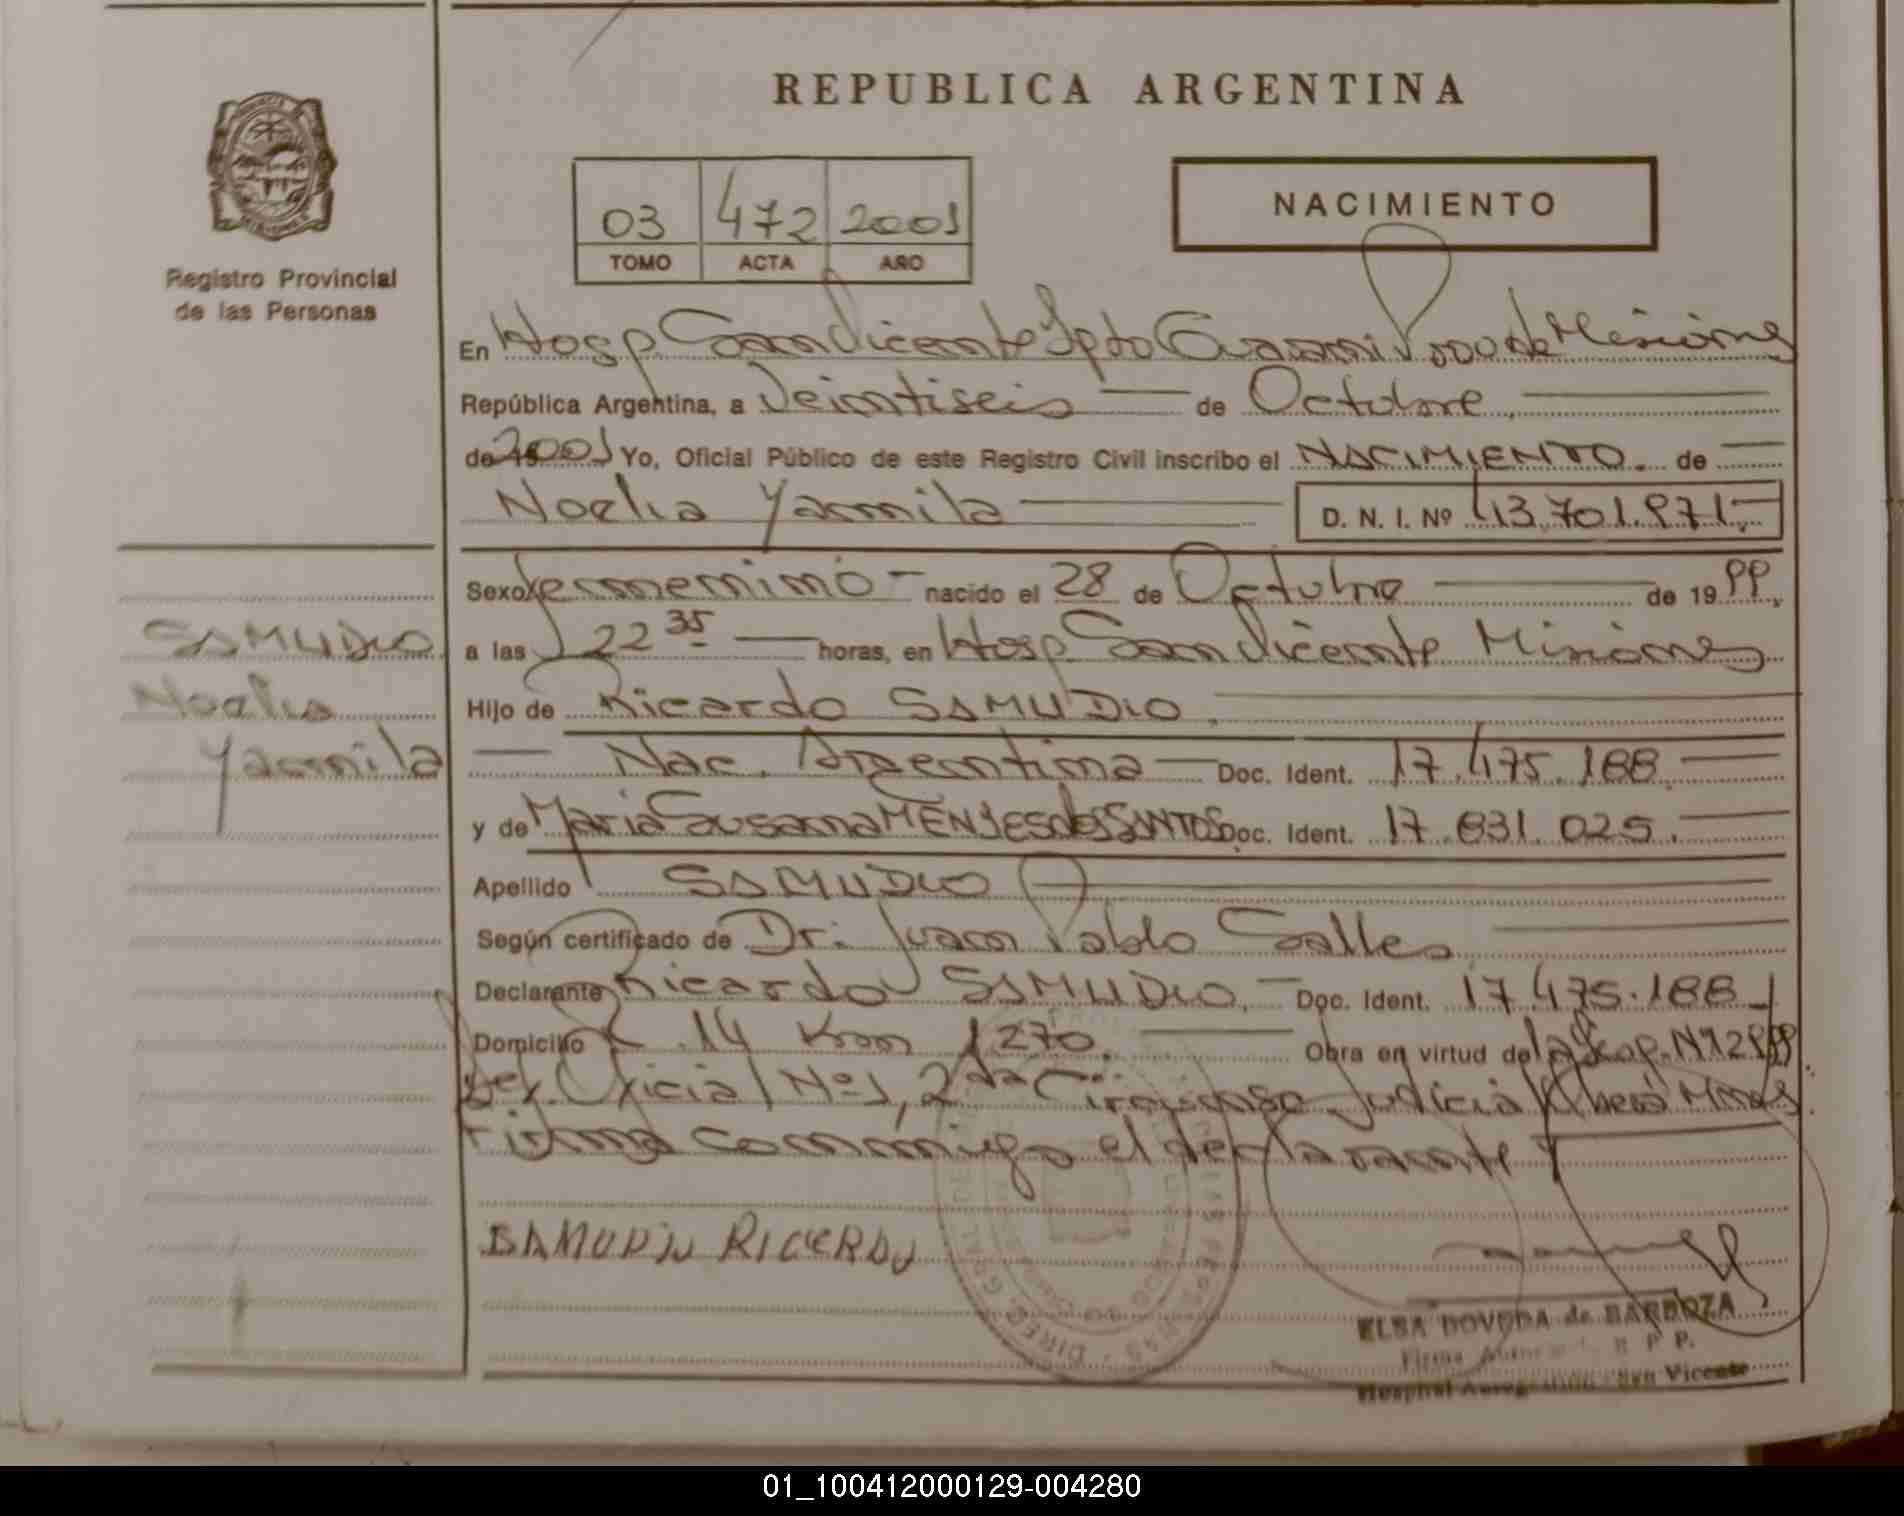 REPUBLICA ARGENTINA
Registro Provincial
de las Personas
03 472 2001
TOMO ACTA AÑO
NACIMIENTO
En Hosp. San Vicente Dpto Guarani Pcia de Misiones
República Argentina, a Veintiseis de Octubre
de 2001 Yo, Oficial Público de este Registro Civil inscribo el NACIMIENTO. de
Noelia Yamila D. N. I. Nº 43.701.971.-
Sexo femenino - nacido el 28 de Octubre de 1999.
SAMUDIO
Noelia
Yamila
a las 22 35 horas, en Hosp San Vicente Misiones
Hijo de Ricardo SAMUDIO
Nac. Argentina Doc. Ident. 17.475.188.
y de Maria Susana MENDES dos SANTOS Doc. Ident. 17.831.025.
Apellido SAMUDIO
Según certificado de Dr: Juan Pablo Salles
Declarante Ricardo SAMUDIO.- Doc. Ident. 17.475.188
Domicilio R. 14 Km 1270. Obra en virtud de
Oficial Nº 1, 2da Judicial Oberá Mnes
Firma conmigo el declarante
SAMUDIO RICARDO
ELSA DOVEDA de BARBOZA
Firma
Hospital San Vicente
01_100412000129-004280